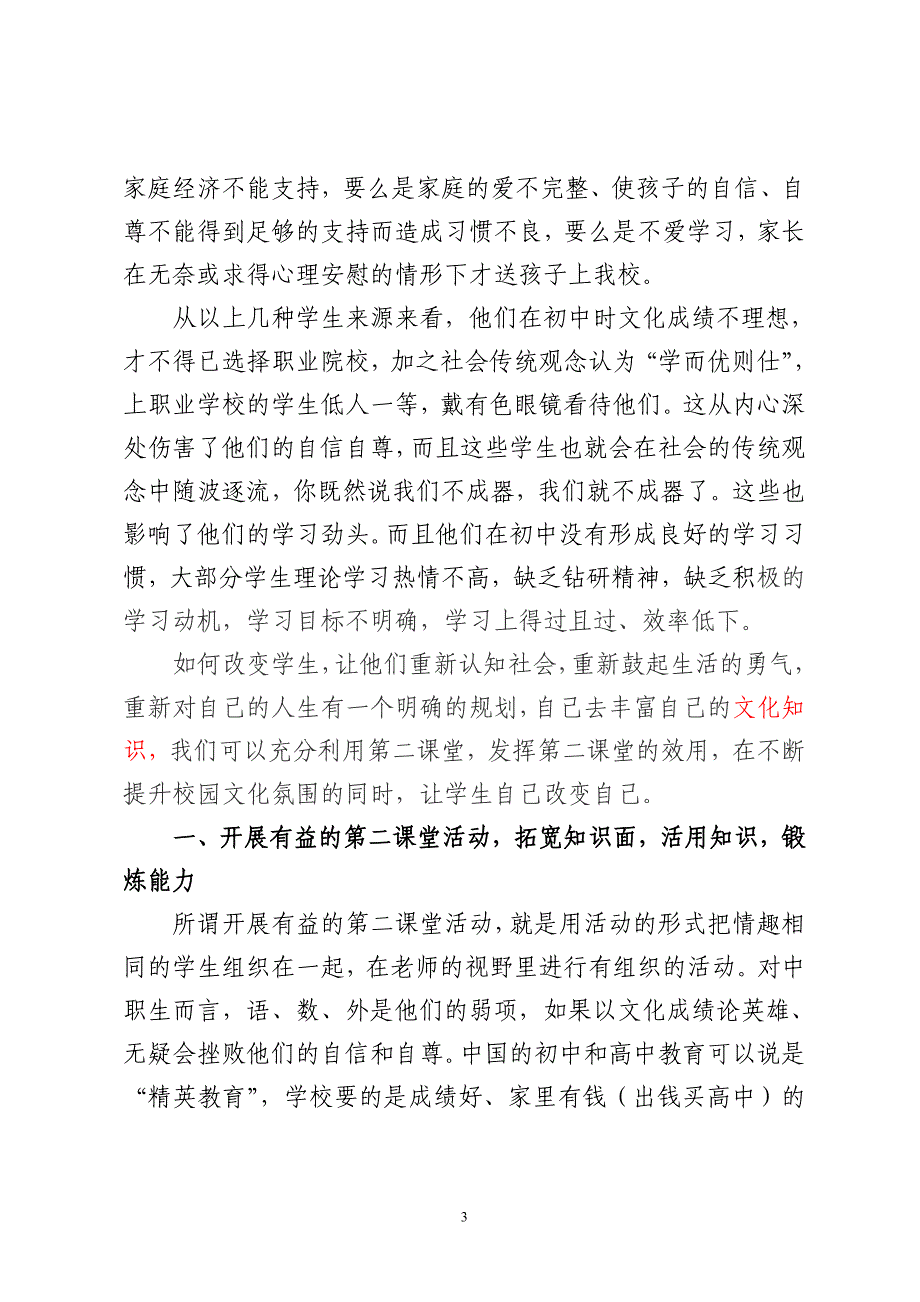 家庭经济不能支持，要么是家庭的爱不完整、使孩子的自信、自
尊不能得到足够的支持而造成习惯不良，要么是不爱学习，家长
在无奈或求得心理安慰的情形下才送孩子上我校。
从以上几种学生来源来看，他们在初中时文化成绩不理想，
才不得已选择职业院校，加之社会传统观念认为“学而优则仕”，
上职业学校的学生低人一等，戴有色眼镜看待他们。这从内心深
处伤害了他们的自信自尊，而且这些学生也就会在社会的传统观
念中随波逐流，你既然说我们不成器，我们就不成器了。这些也
影响了他们的学习劲头。而且他们在初中没有形成良好的学习习
惯，大部分学生理论学习热情不高，缺乏钻研精神，缺乏积极的
学习动机，学习目标不明确，学习上得过且过、效率低下。
如何改变学生，让他们重新认知社会，重新鼓起生活的勇气，
重新对自己的人生有一个明确的规划，自己去丰富自己的文化知
识，我们可以充分利用第二课堂，发挥第二课堂的效用，在不断
提升校园文化氛围的同时，让学生自己改变自己。
一、开展有益的第二课堂活动，拓宽知识面，活用知识，锻
炼能力
所谓开展有益的第二课堂活动，就是用活动的形式把情趣相
同的学生组织在一起，在老师的视野里进行有组织的活动。对中
职生而言，语、数、外是他们的弱项，如果以文化成绩论英雄、
无疑会挫败他们的自信和自尊。中国的初中和高中教育可以说是
“精英教育”，学校要的是成绩好、家里有钱（出钱买高中）的
3